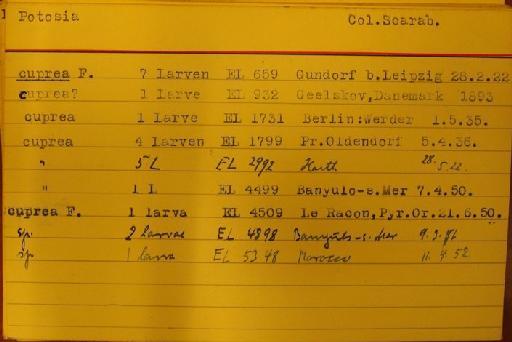 Potosia Col.Scarab.
cuprea F. 7 Larven EL 659 Gundorf b.Leipzig 28.2.22
cuprea? 1 Larve EL 932 Geelskov,Danemark 1893
cuprea 1 Larve EL 1731 Berlin:Werder 1.5.35.
cuprea 4 Larven EL 1799 Pr.Oldendorf 5.4.36.
" 5 L EL 2992 28.5.22.
" 1 L EL 4499 Banyulo-s.Mer 7.4.50.
cuprea F. 1 larva EL 4509 Le Racon,Pyr.Or.21.6.50.
sp 2 larvae EL 4898 Banyuls-s.Mer 9.3.51
sp 1 larva EL 5348 Marocco 11.4.52